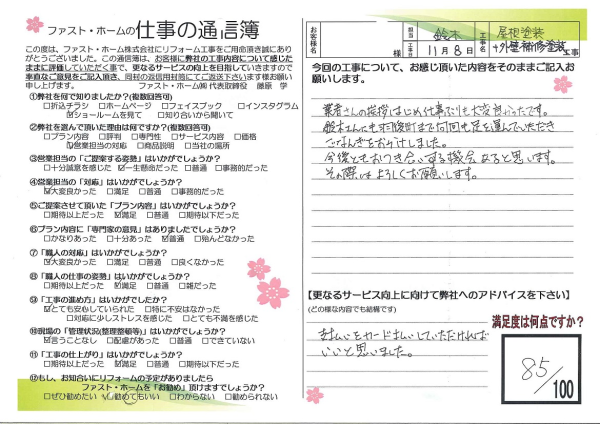 ファスト・ホームの仕事の通信簿
この度は、ファスト・ホーム株式会社にリフォーム工事をご用命頂き誠にあり
がとうございました。この通信簿は、お客様に弊社の工事内容について感じた
ままに評価していただく事で、更なるサービスの向上を目指していきますので
率直なご意見をご記入頂き、同封の返信用封筒にてご送下さいます様お願い
申し上げます。 ファスト・ホーム㈱ 代表取締役 藤原 学
①弊社を何で知りましたか?(複数回答可)
□折込チラシ □ホームページ □フェイスブック □インスタグラム
☑ショールームを見て □知り合いから聞いて
②弊社を選んで頂いた理由は何ですか?(複数回答可)
□プラン内容 □評判 □専門性 □サービス内容 □価格
☑営業担当の対応 □商品説明 □当社の場所
③営業担当の「ご提案する姿勢」はいかがでしょうか?
□十分誠意を感じた ☑一生懸命だった □普通 □事務的だった
④営業担当の「対応」はいかがでしょうか?
☑大変良かった □満足 □普通 □事務的だった
⑤ご提案させて頂いた「プラン内容」はいかがでしょうか?
□期待以上だった ☑満足 □普通 □期待以下だった
⑥プラン内容に「専門家の意見」はありましたでしょうか?
□かなりあった □十分あった ☑普通 □殆んどなかった
⑦「職人の対応」はいかがでしょうか?
☑大変良かった □満足 □普通 □良くなかった
⑧「職人の仕事の姿勢」はいかがでしょうか?
□期待以上だった ☑満足 □普通 □雑だった
⑨「工事の進め方」はいかがでしたか?
☑とても安心していられた □特に不安はなかった
□対応に少しストレスを感じた □とても不満を感じた
⑩現場の「管理状況(整理整頓等)」はいかがでしょうか?
☑言うことなし □配慮があった □普通 □できていない
⑪「工事の仕上がり」はいかがでしょうか?
□期待以上だった ☑満足 □普通 □期待以下だった
⑫もし、お知合いにリフォームの予定がありましたら
ファスト・ホームを「お勧め」頂けますでしょうか?
□ぜひ勧めたい ☑勧めてもいい □わからない □勧められない
お客様名 様
担当 鈴木
工事日 11月8日
工事名 屋根塗装
+外壁補修塗装 工事
今回の工事について、お感じ頂いた内容をそのままご記入お
願いします。
業者さんの挨拶はじめ仕事ぶりも大変良かったです。
鈴木さんにも 何回も足を運んでいただき
ごなんぎをおかけしました。
今後ともおつき合いする機会あると思います。
その際はよろしくお願いします。
【更なるサービス向上に向けて弊社へのアドバイスを下さい】
(どの様な内容でも結構です)
支払いをカード払いしていただければ
いいと思いました。
満足度は何点ですか?
85/100